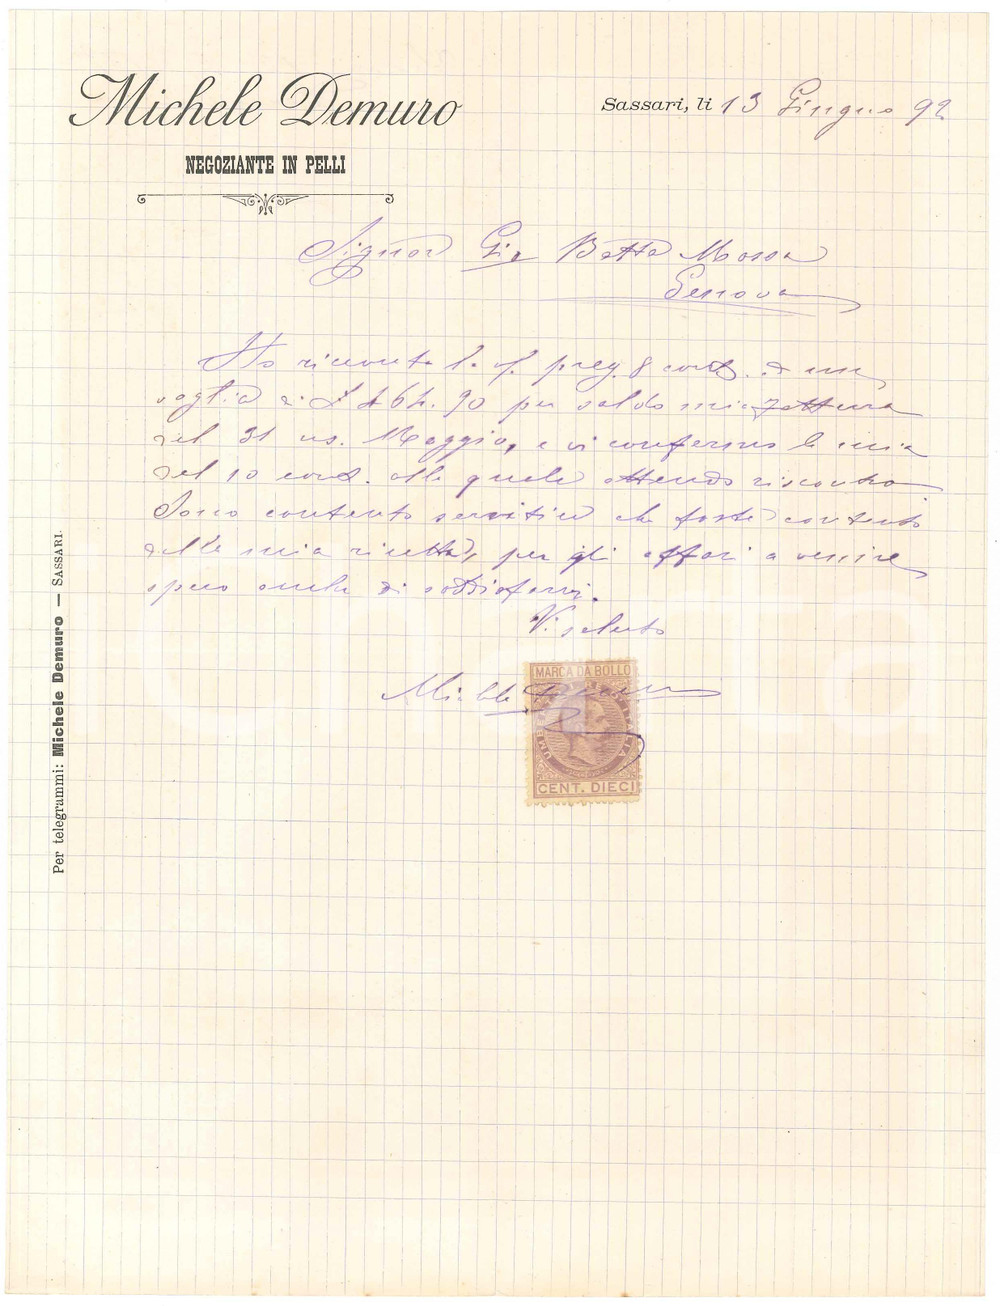 Michele Demuro
NEGOZIANTE IN PELLI
Sassari, li 13 Giugno 92
Signor Gio Batta Mossa
Genova
Ho ricevuto la s. preg. 8 corr. di un
voglia di L 464.90 per saldo mia fattura
del 31 us. Maggio, e vi confermo la mia
del 10 corr. alla quale attendo riscontro
Sono contento sentire che foste contento
della mia ricetta, per gli affari a venire
spero anche di soddisfarvi.
Vi saluto
Michele Demuro
MARCA DA BOLLO
CENT. DIECI
Per telegrammi: Michele Demuro — SASSARI.